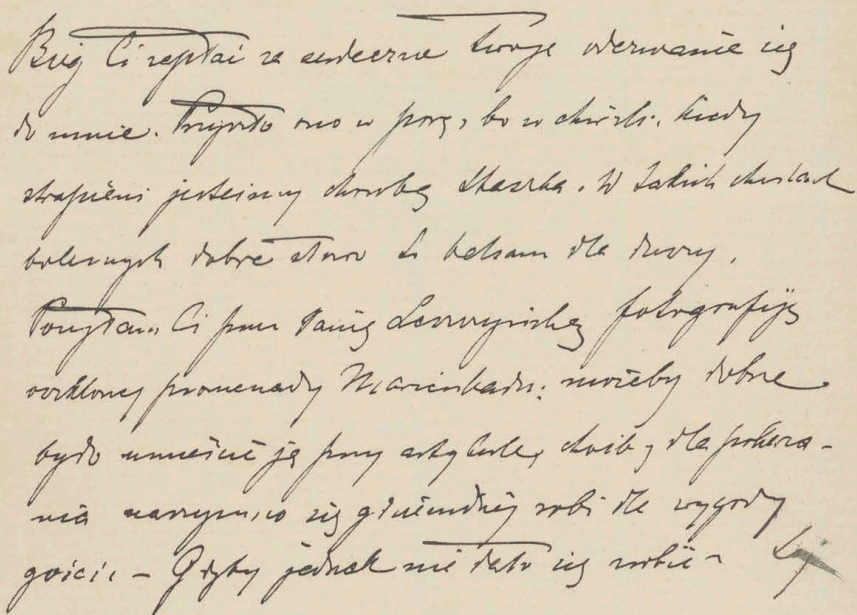 Bóg Ci zapłać za serdeczne Twoje oderwanie się
do mnie. Przyszło ono w porę, bo w chwili, kiedy
strapieni jesteśmy chorobą Staszka. W takich chwilach
bolesnych dobre słowo to balsam dla duszy.
Posyłam Ci przez Panią fotografiję
oszklonej promenady Marienbadu; możeby dobrze
było umieścić ją przy artykule, choćby dla pokaza-
nia naszym, co się gdzieindziej robi dla wygody
gości. – Gdyby jednak nie dało się zrobić –